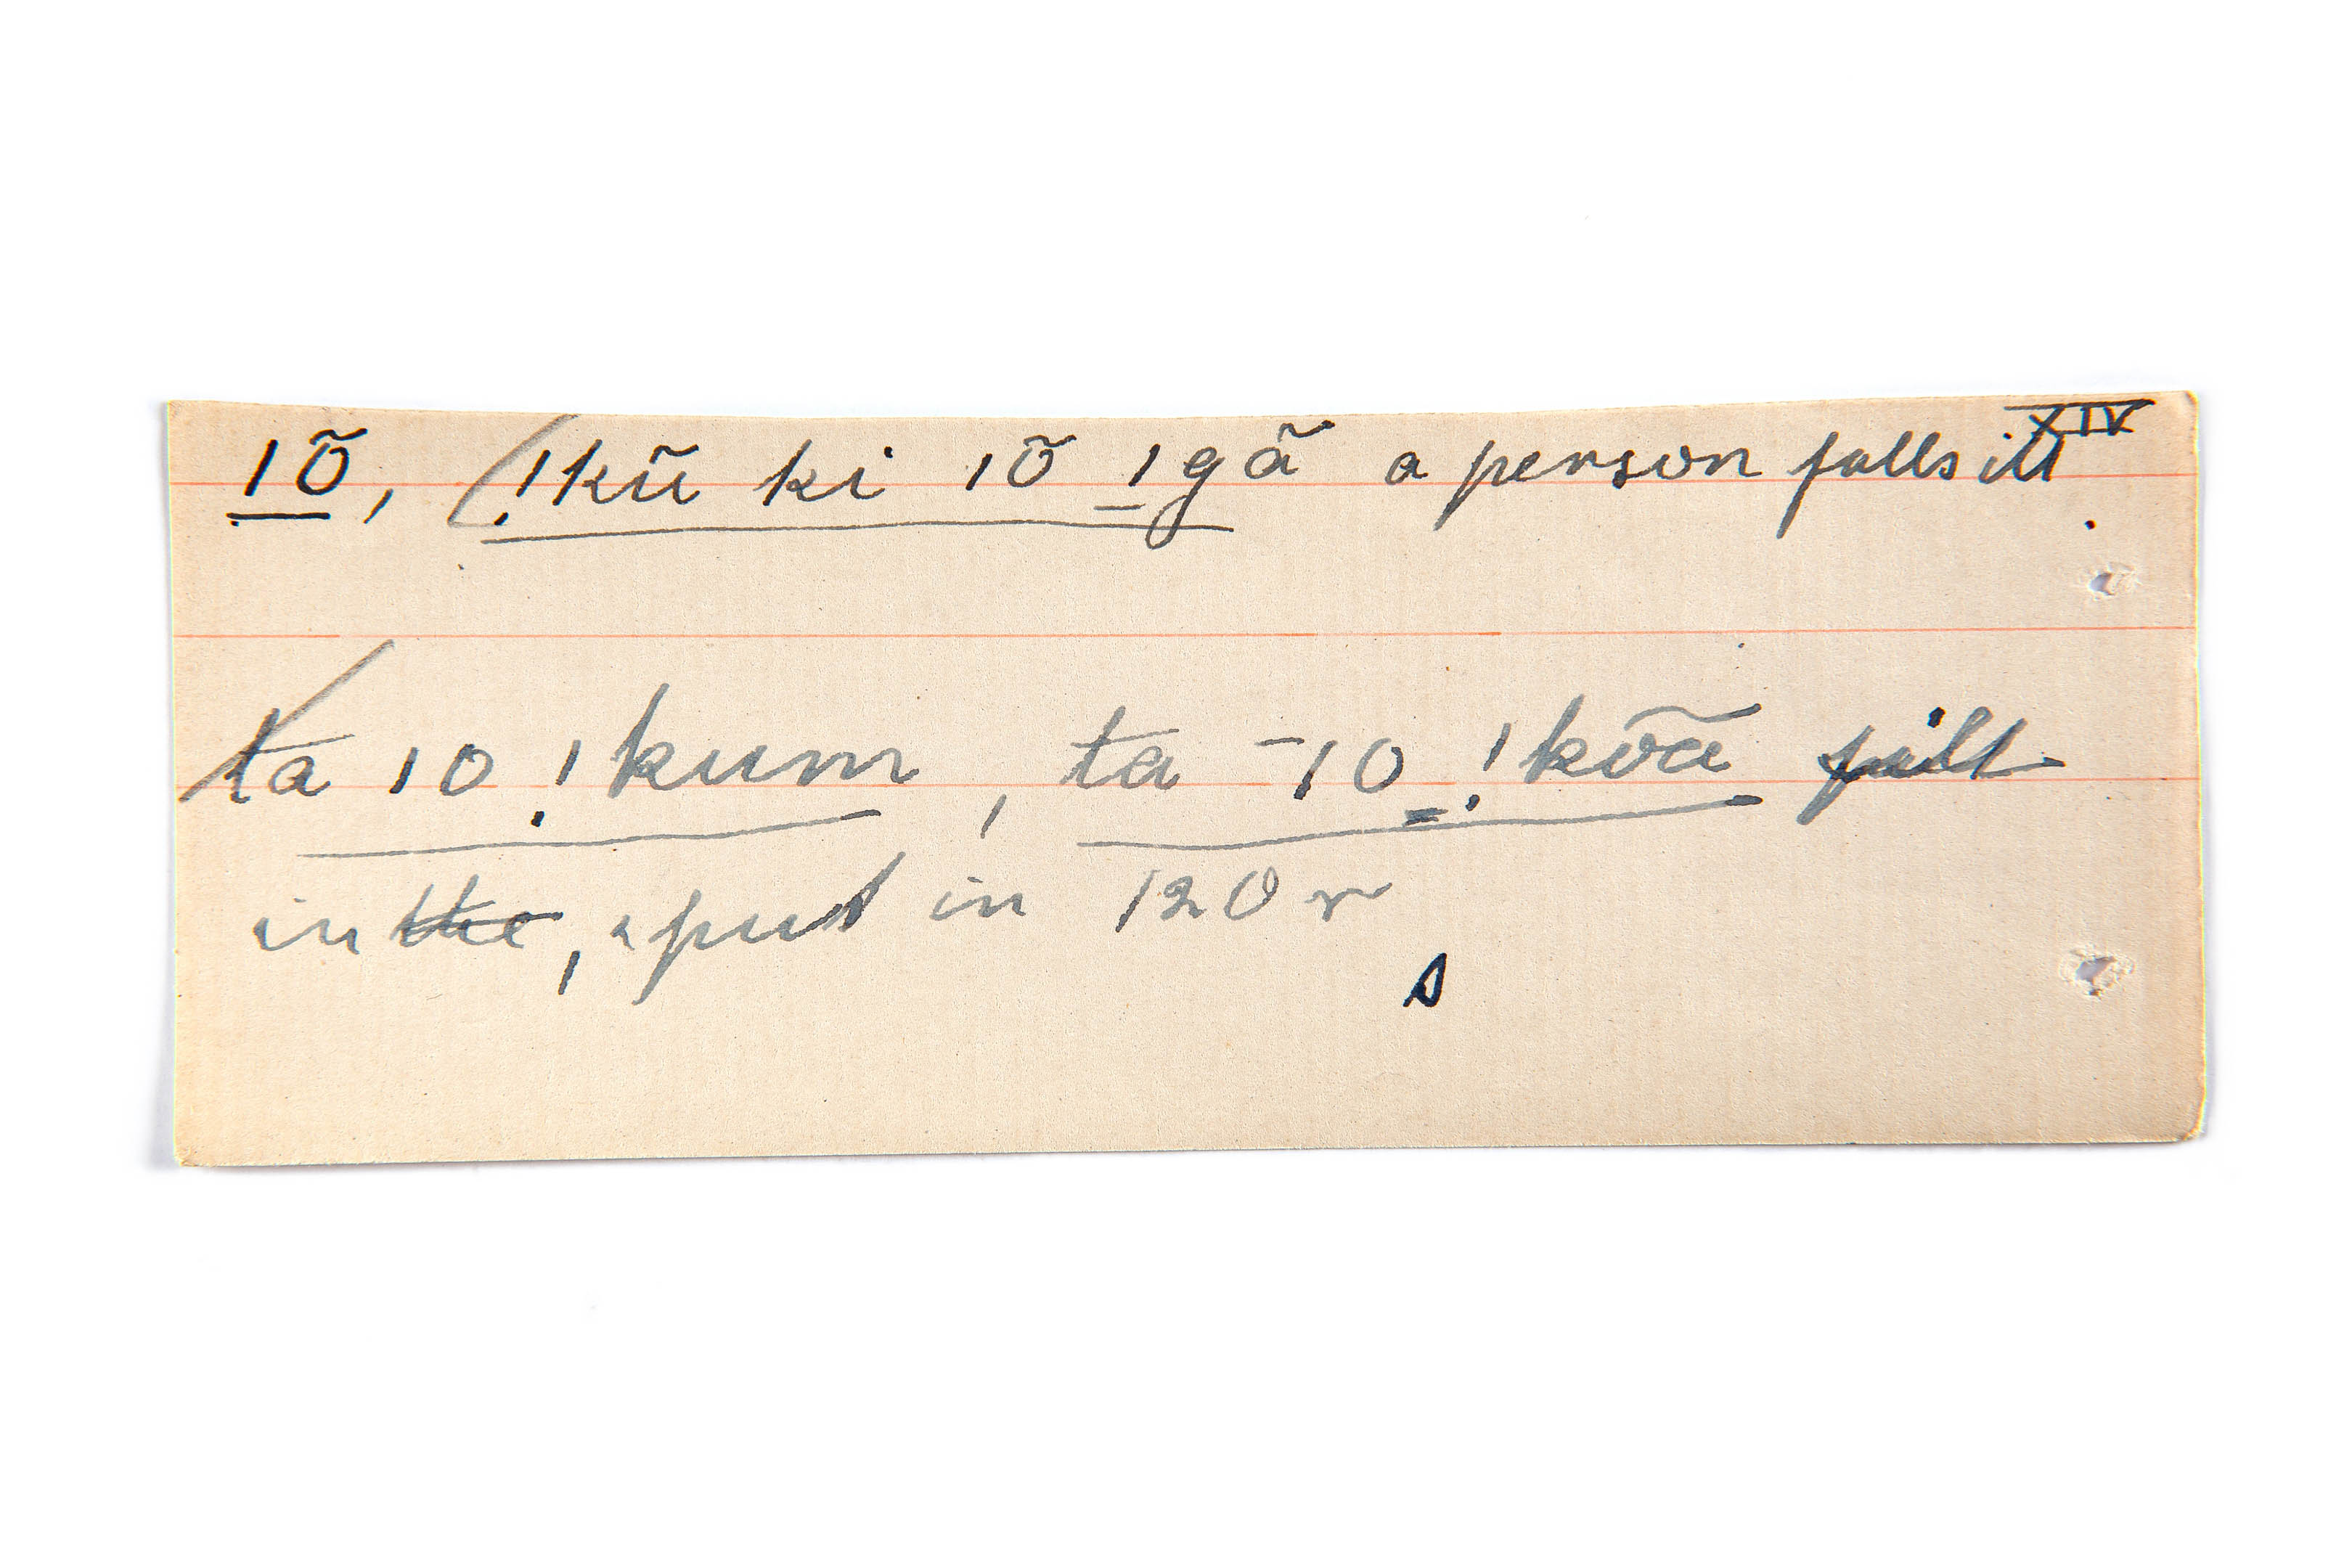 XIV
ǀõ, ǃkũ ki ǀõ ǀgã a person falls ill.
ta ǀo ǃkum, ta -ǀo ǃkõa fill
in the, put in 120 r
s